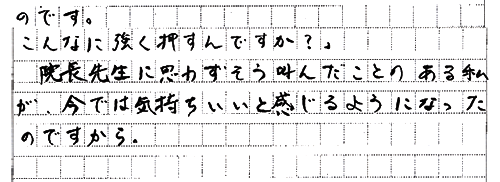 のです。
こんなに強く押すんですか？」
院長先生に思わずそう叫んだことのある私
が、今では気持ちいいと感じるようになった
のですから。